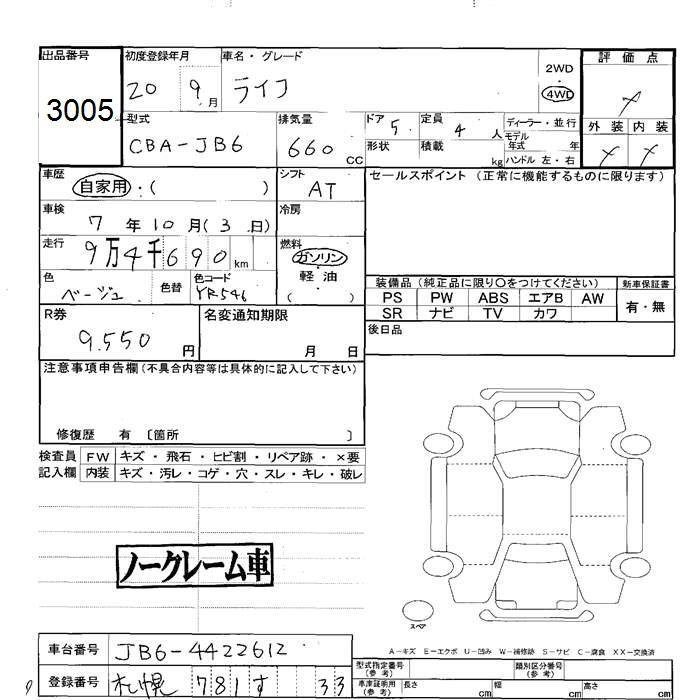 出品番号
3005
初度登録年月
20 9月
車名・グレード
ライフ
2WD
4WD
評価点
外装 内装
型式
CBA-JB6
排気量
660 CC
ドア 5
形状
定員 4 人
積載 kg
ディーラー・並行
モデル年式 年
ハンドル 左・右
車歴
自家用:( )
シフト
AT
セールスポイント(正常に機能するものに限ります)
車検
7年10月(3日)
冷房
走行
9万4千690km
燃料
ガソリン
・
軽油
( )
色
ベージュ
色替
色コード
YR546
装備品(純正品に限り〇をつけてください)
新車保証書
PS PW ABS エアB AW
有・無
SR ナビ TV カワ
R券
9.550 円
名変通知期限
月 日
後日品
注意事項申告欄(不具合内容等は具体的に記入して下さい)
修復歴 有 〔箇所 〕
検査員
記入欄
FW キズ・飛石・ヒビ割・リペア跡・×要
内装 キズ・汚レ・コゲ・穴・スレ・キレ・破レ
ノークレーム車
スペア
A-キズ E-エクボ U-凹み W-補修跡 S-サビ C-腐食 XX-交換済
車台番号
JB6-4422612
登録番号
札幌 781 す 33
型式指定番号(参考)
類別区分番号(参考)
車庫証明用(参考)
長さ cm 幅 cm 高さ cm